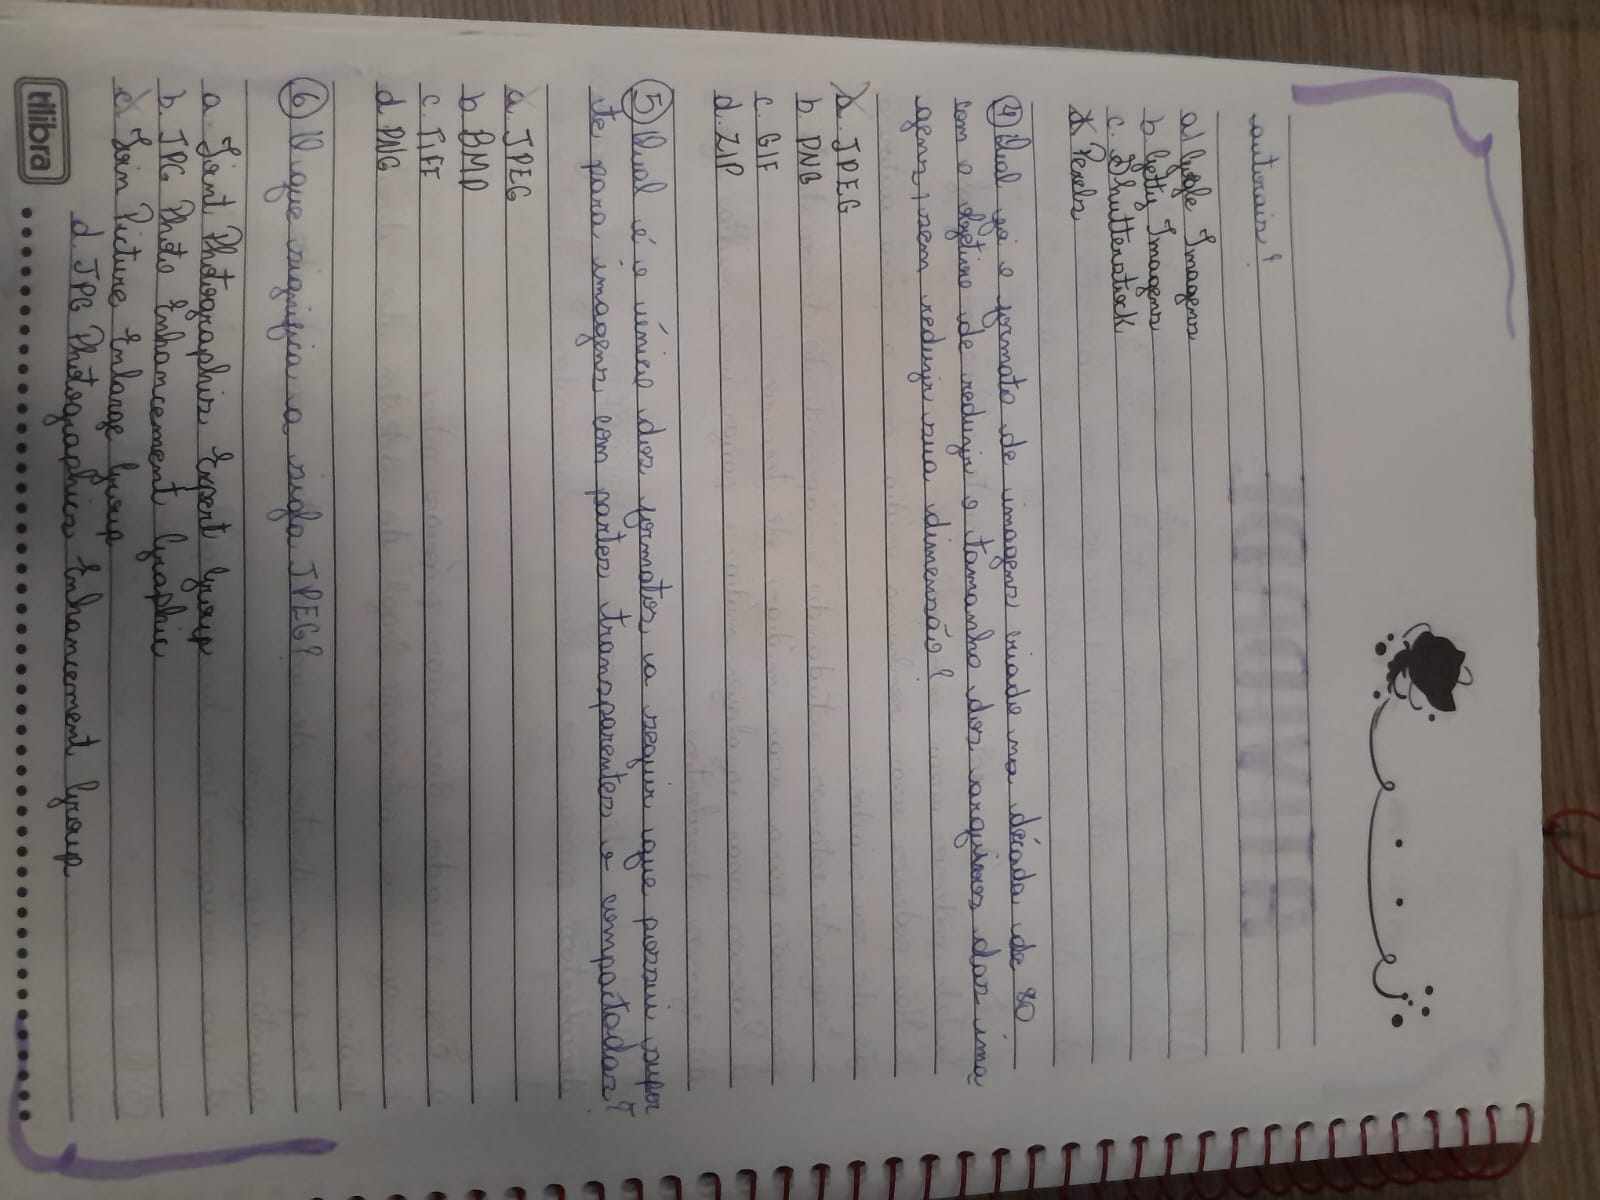 autorais?
a) Google Imagens
b. Getty Imagens
c. Shutterstock
d. Pexels
4) Qual é o formato de imagens criado na década de 80
com o objetivo de reduzir o tamanho dos arquivos das ima
gens, sem reduzir sua dimensão?
a. JPEG
b. PNG
c. GIF
d. ZIP
5) Qual é o único dos formatos a seguir que possui supor
te para imagens com partes transparentes e compactadas?
a. JPEG
b. BMP
c. TIFF
d PNG
6) O que significa a sigla JPEG?
a. Joint Photographis Expert Group
b. JPG Photo Enhancement Graphic
c. Join Picture Enlarge Group
d. JPG Photographics Enhancement Group
tilibra